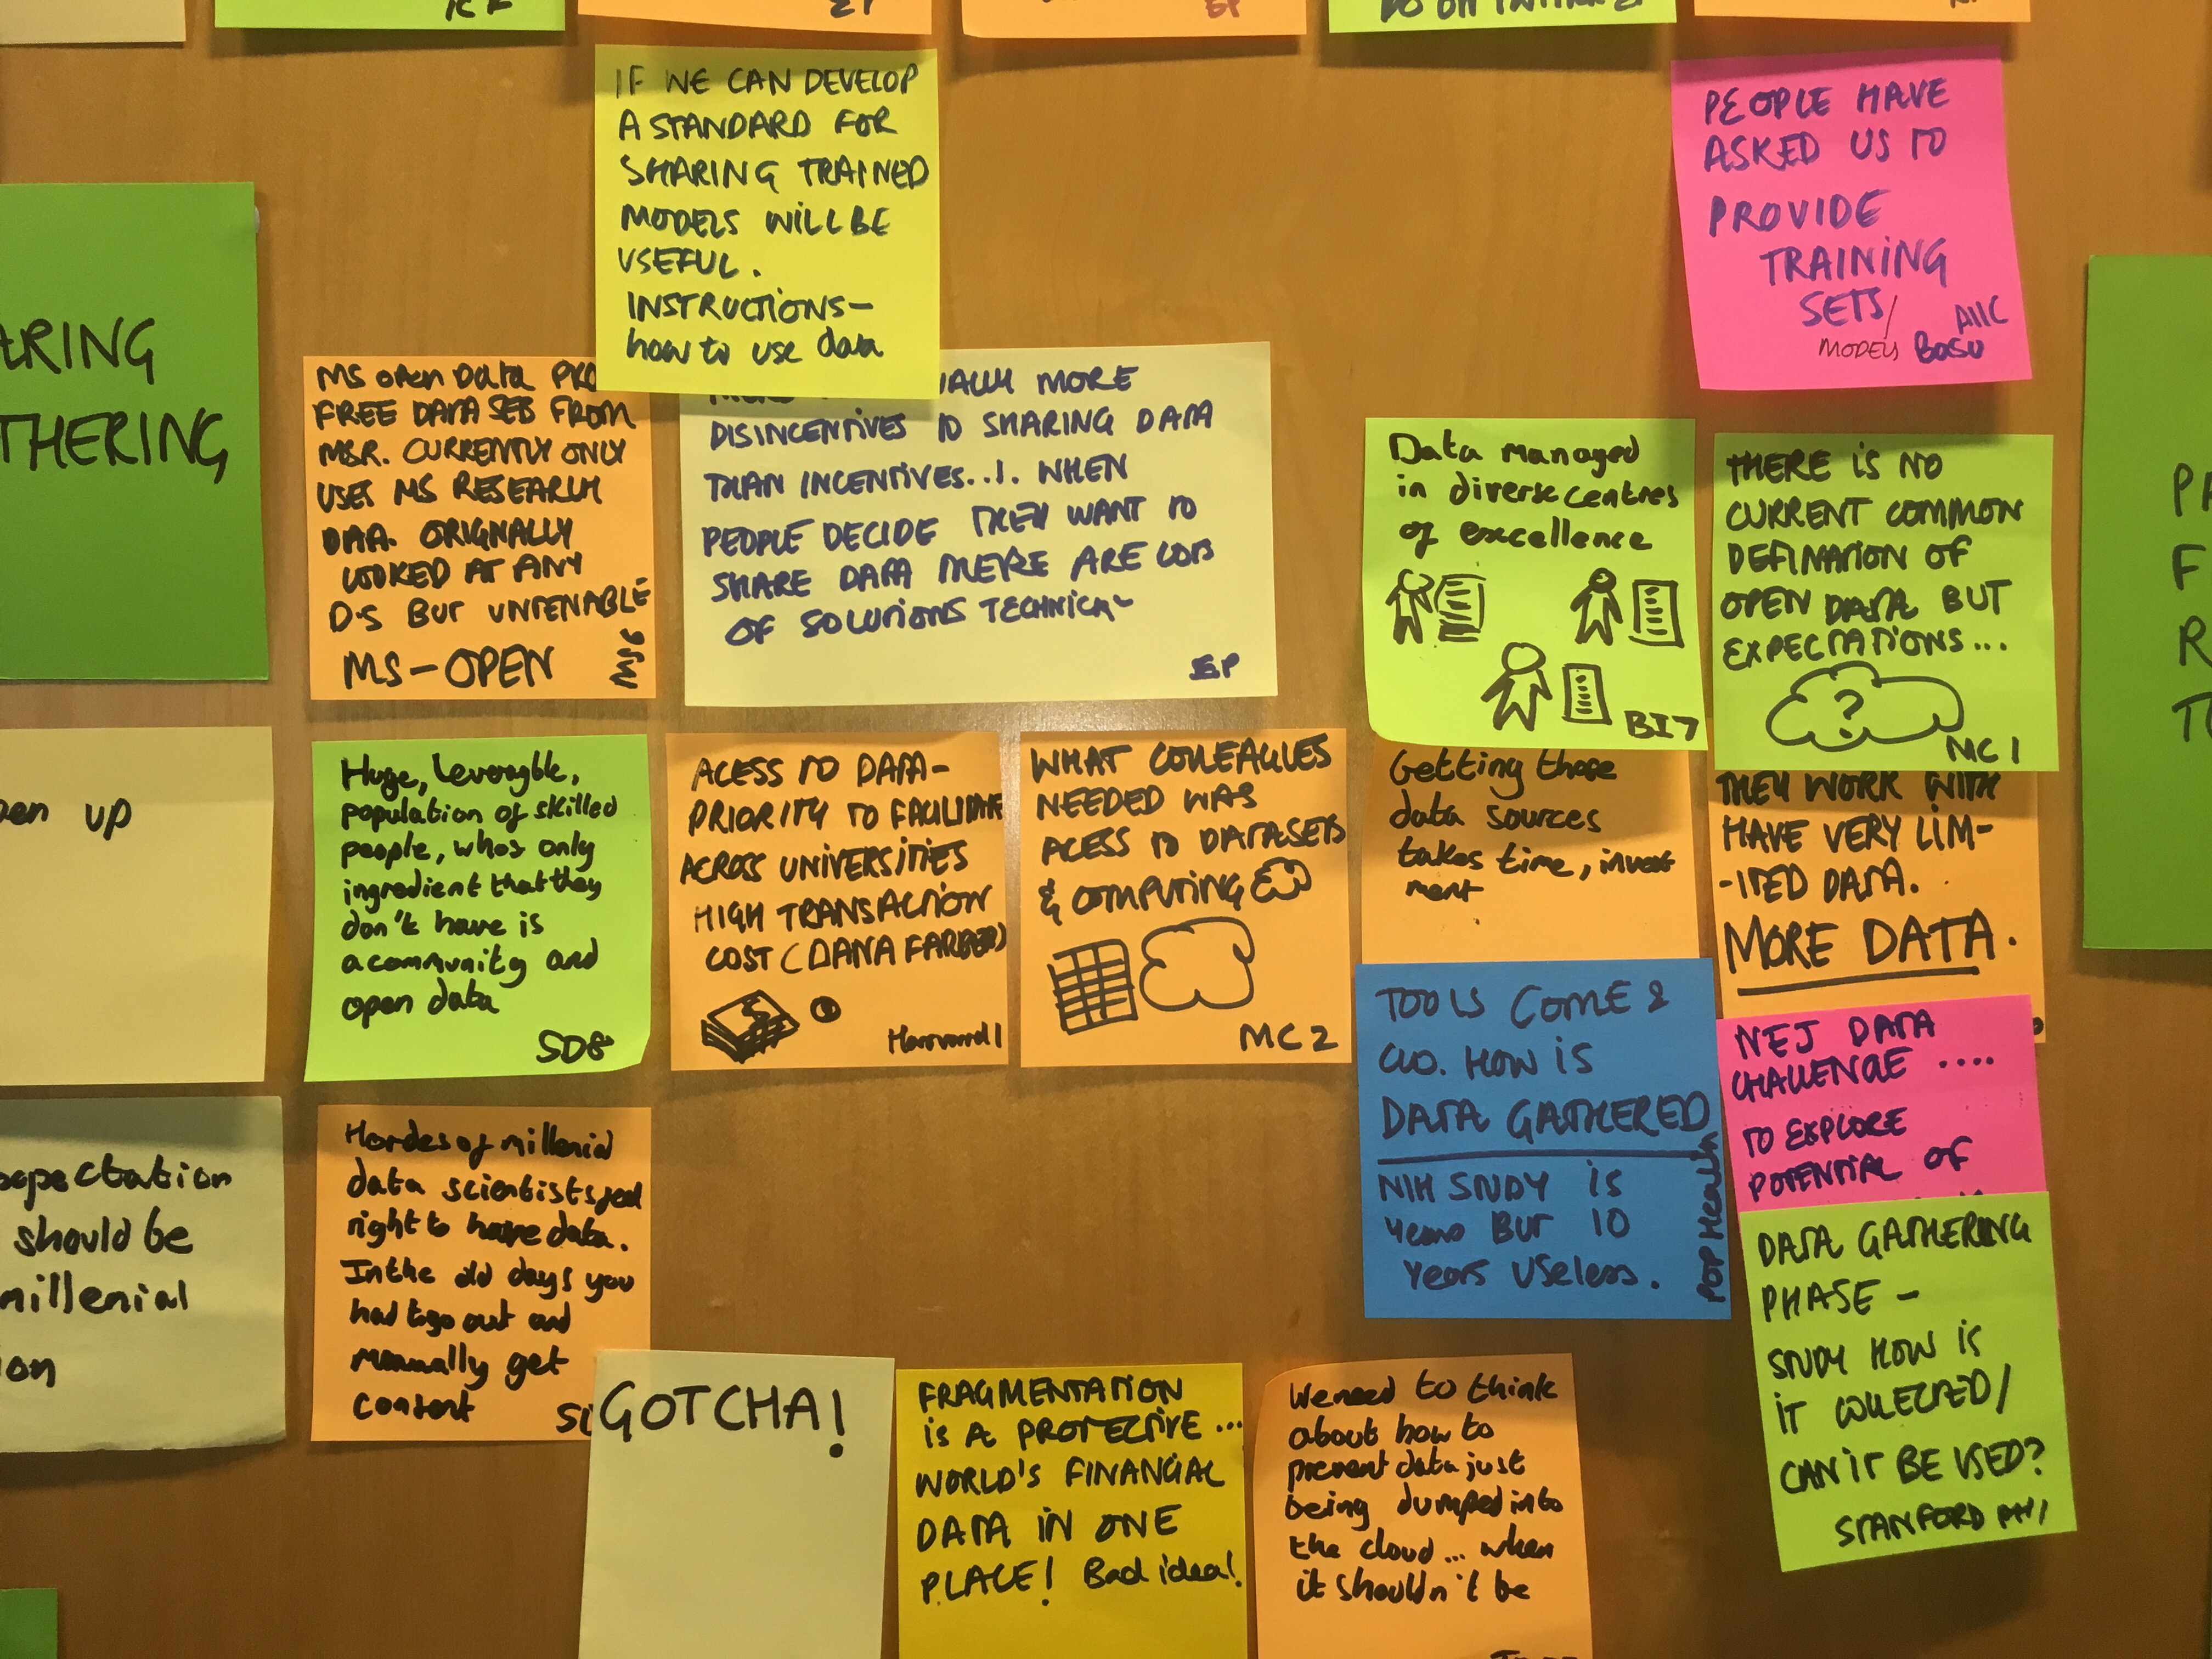 IF WE CAN DEVELOP
A STANDARD FOR
SHARING TRAINED
MODELS WILL BE
USEFUL.
INSTRUCTIONS—
how to use data
PEOPLE HAVE
ASKED US TO
PROVIDE
TRAINING
SETS/
MODELS
BOSU
ARING
THERING
MS OPEN DATA PRO
FREE DATA SETS FROM
MSR. CURRENTLY ONLY
USES MS RESEARCH
DATA. ORIGNALLY
LOOKED AT ANY
D.S BUT UNTENABLE
MS-OPEN
MS6
UALLY MORE
DISINCENTIVES TO SHARING DATA
THAN INCENTIVES..1. WHEN
PEOPLE DECIDE THEY WANT TO
SHARE DATA THERE ARE LOTS
OF SOLUTIONS TECHNICAL
EP
Data managed
in diverse centres
of excellence
BI7
THERE IS NO
CURRENT COMMON
DEFINATION OF
OPEN DATA BUT
EXPECTATIONS...
?
MC1
Huge, leveragble,
population of skilled
people, whos only
ingredient that they
don't have is
a community and
open data
SD8
ACESS TO DATA-
PRIORITY TO FACILITATE
ACROSS UNIVERSITIES
HIGH TRANSACTION
COST (DANA FARBER)
Harvard1
WHAT COLLEAGUES
NEEDED WAS
ACESS TO DATASETS
& COMPUTING
MC2
Getting those
data sources
takes time, invest
ment
THEY WORK WITH
HAVE VERY LIM-
-ITED DATA.
MORE DATA.
TOOLS COME &
GO. HOW IS
DATA GATHERED
NIH STUDY IS
years BUT 10
years useless.
POP Health
NEJ DATA
CHALLENGE ....
TO EXPLORE
POTENTIAL OF
DATA GATHERING
PHASE -
STUDY HOW IS
IT COLLECTED/
CAN IT BE USED?
STANFORD
en up
xpectation
should be
millenial
ion
Hordes of millenial
data scientists feel
right to have data.
In the old days you
had to go out and
manually get
consent
GOTCHA!
FRAGMENTATION
is A PROTECTIVE...
WORLD'S FINANCIAL
DATA IN ONE
PLACE! Bad idea!
We need to think
about how to
prevent data just
being dumped into
the cloud... when
it shouldn't be